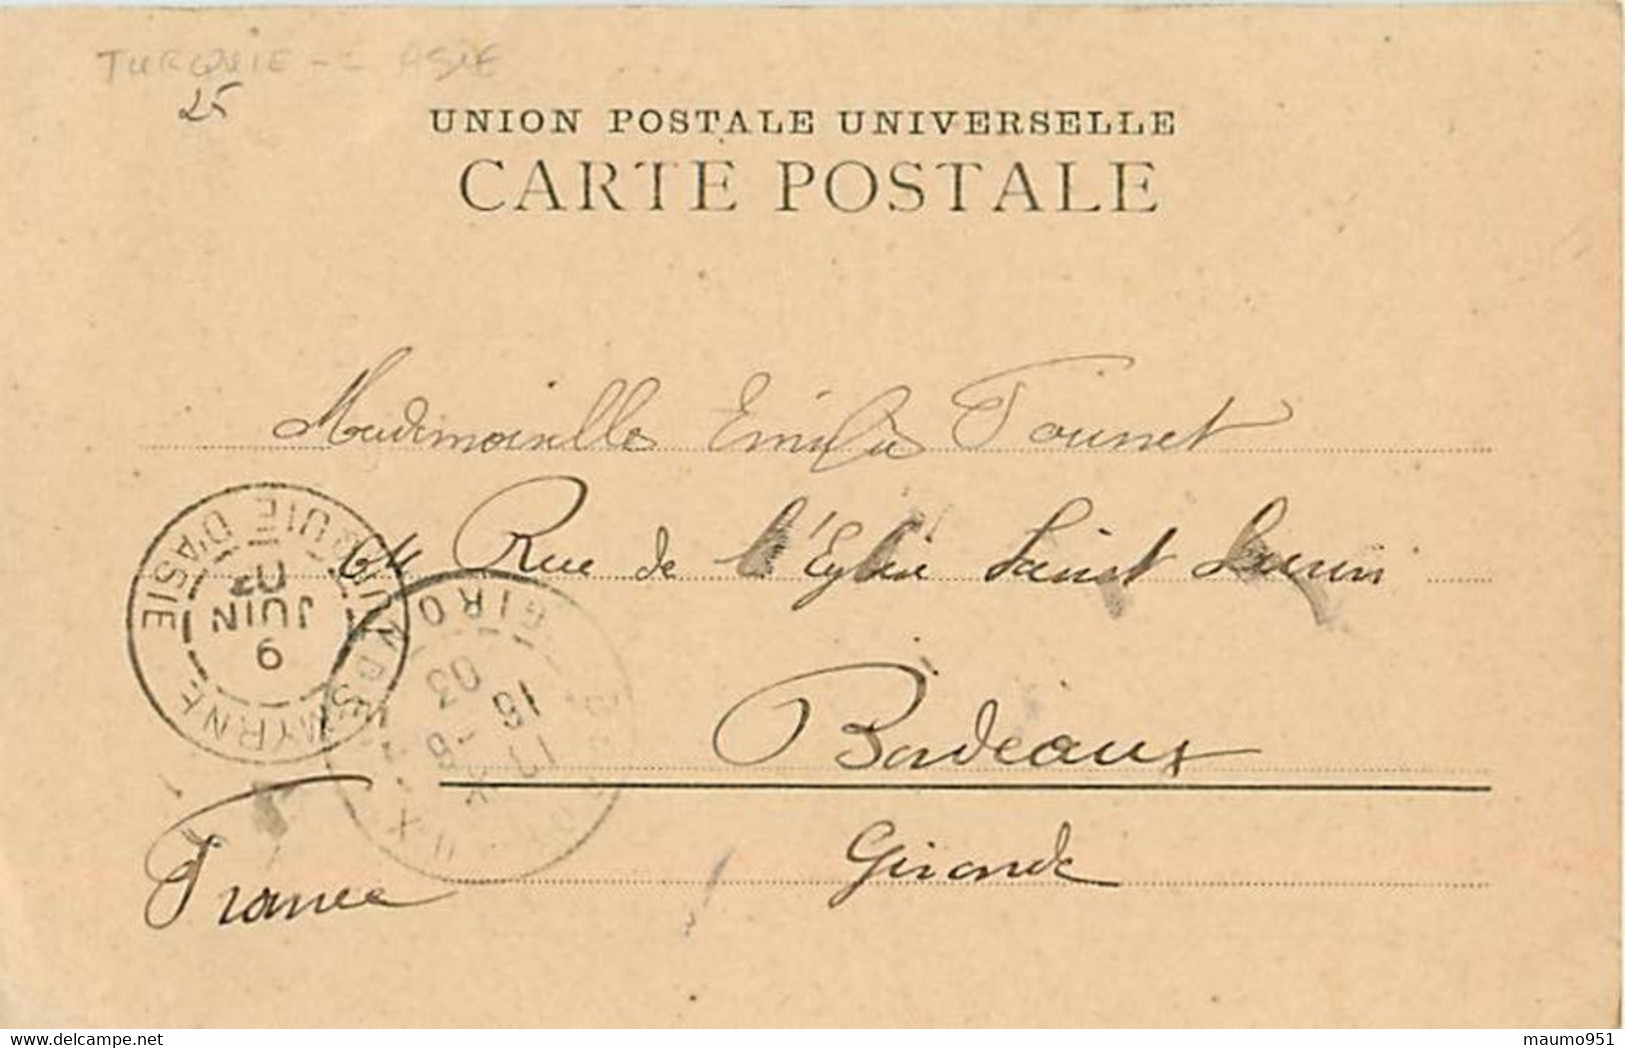 TURQUIE - ASIE
25
UNION POSTALE UNIVERSELLE
CARTE POSTALE
Mademoiselle Emilie Tournet
64 Rue de l'Eglise Saint Seurin
Bordeaux
Gironde
France
SMYRNE TURQUIE D'ASIE
9
JUIN
03
BORDEAUX GIRONDE
18 - 6
03
maumo951